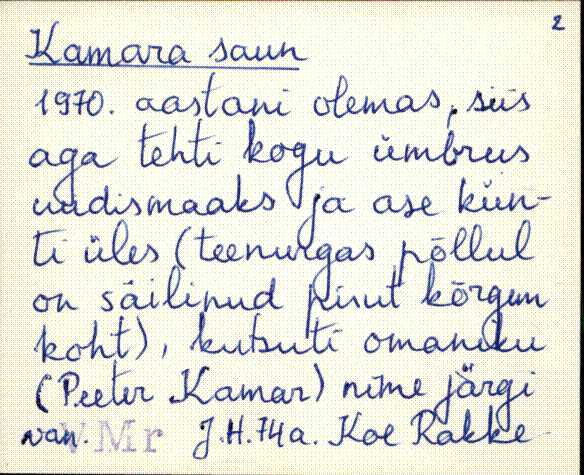 2
Kamara saun
1970. aastani olemas, siis
aga tehti kogu ümbrus
uudismaaks ja ase kün-
ti üles (teenurgas põllul
on säilinud pisut kõrgem
koht), kutsuti omaniku
(Peeter Kamar) nime järgi
van. VMr J.H. 74a. Koe Rakke